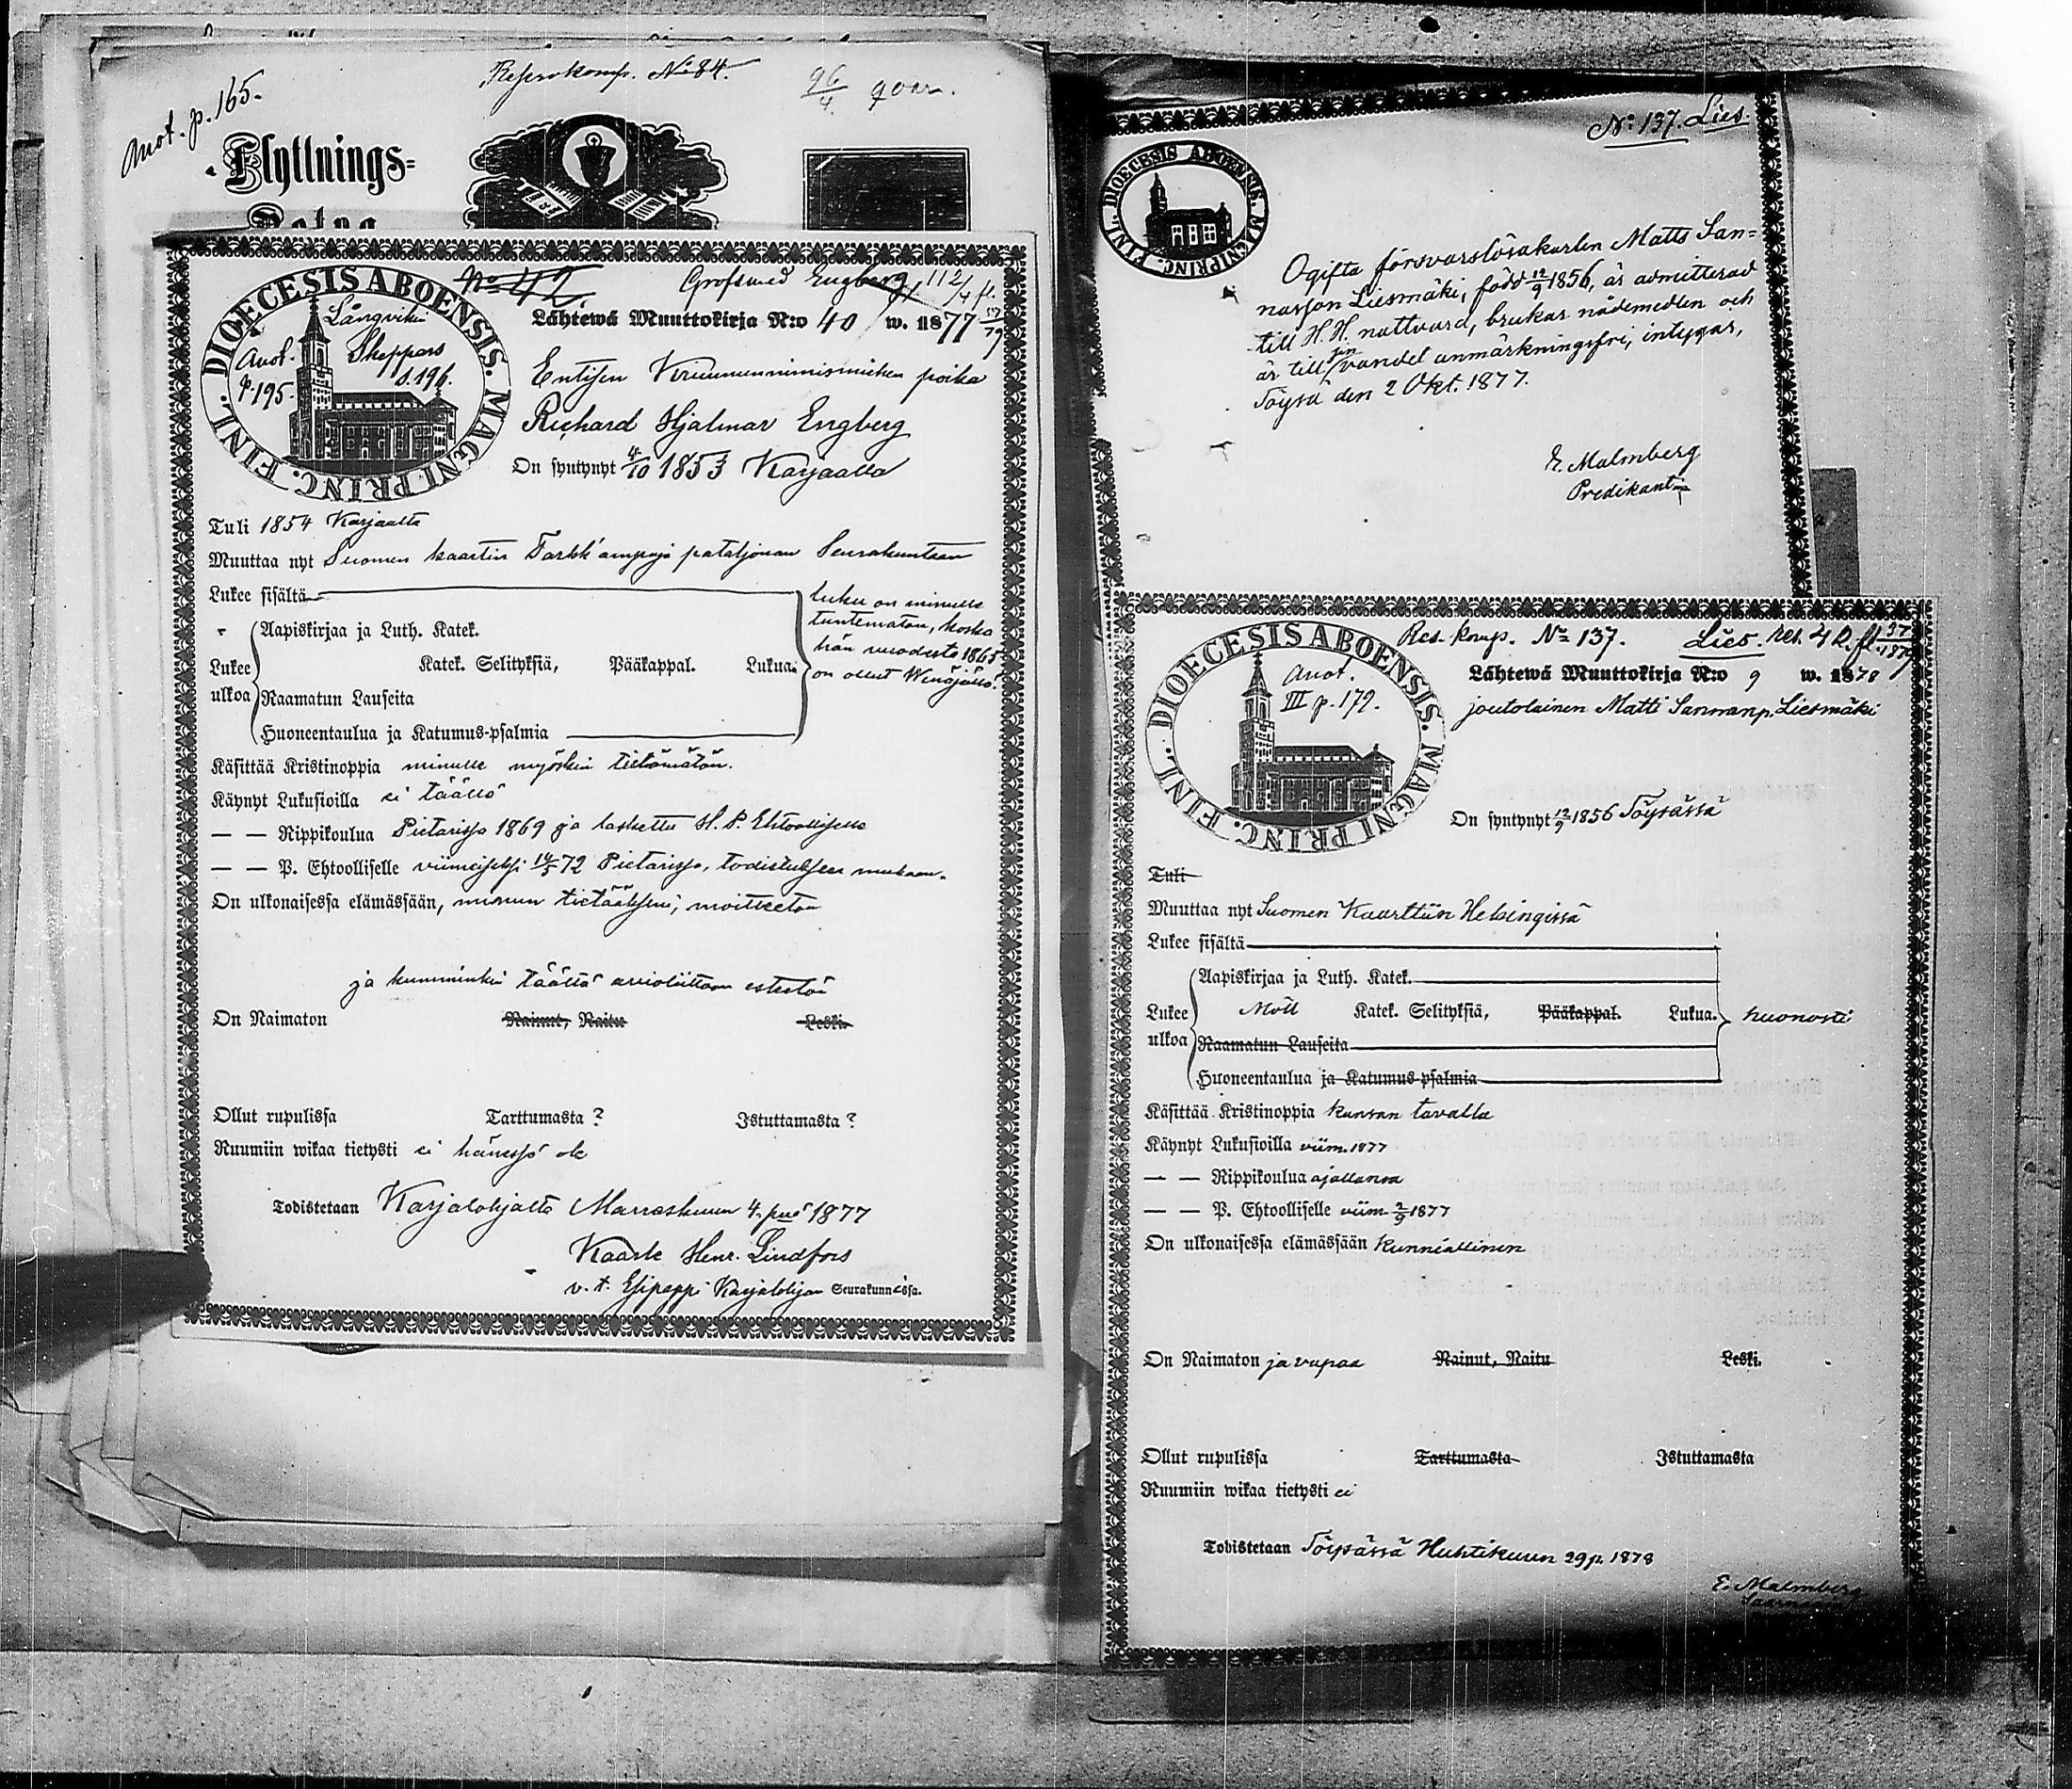 Anot. p. 165.
Reservkomp. No 84.
96/4 qvar.
Flyttnings=
No 42
Grofsmed Engberg 112/4 fl.
DIOECESIS ABOENSIS. MAGNI PRINC. FINL.
Långviks
Anot. Skeppars
p. 195. s. 196.
Lähtewä Muuttokirja N:o 40 w. 1877
Entisen Kruununnimismiehen poika
Richard Hjalmar Engberg
On syntynyt 4/10 1853 Karjaalla
Tuli 1854 Karjaalta
Muuttaa nyt Suomen kaartin Tarkk'ampuja pataljonan Seurakuntaan
Lukee sisältä
Aapiskirjaa ja Luth. Katek.
Lukee Katek. Selityksiä, Pääkappal. Lukua.
ulkoa Raamatun Lauseita
Huoneentaulua ja Katumus-psalmia
luku on minulle
tuntematon, koska
hän vuodesta 1865
on ollut Wenäjällä.
Käsittää Kristinoppia minulle myöskin tietämätön.
Käynyt Lukusioilla ei täällä
— — Rippikoulua Pietarissa 1869 ja laskettu H. P. Ehtoolliselle
— — P. Ehtoolliselle viimeiseksi 14/5 72 Pietarissa, todistuksen mukaan.
On ulkonaisessa elämässään, minun tietääkseni, moitteeton
ja kumminkin täältä avioliittoon esteetön
On Naimaton Nainut, Naitu Leski.
Ollut rupulissa Tarttumasta? Istuttamasta?
Ruumiin wikaa tietysti ei hänessä ole
Todistetaan Karjalohjalta Marraskuun 4. pnä 1877
Kaarle Henr. Lindfors
v. t. Esipappi Karjalohjan Seurakunnassa.
No 137. Lies.
DIOECESIS ABOENSIS. MAGNI PRINC. FINL.
Ogifta försvarslösakarlen Matts San=
nasson Liesmäki, född 12/9 1856, är admitterad
till H. H. nattvard, brukar nådemedlen och
är till sin vandel anmärkningsfri, intygar,
Töysä den 2 Okt. 1877.
E. Malmberg
Predikant
Res. komp. No 137. Lies. res. 4
DIOECESIS ABOENSIS. MAGNI PRINC. FINL.
Anot.
III p. 179.
Lähtewä Muuttokirja N:o 9 w. 1878
joutolainen Matti Sannanp. Liesmäki
On syntynyt 12/9 1856 Töysässä
Tuli
Muuttaa nyt Suomen Kaarttiin Helsingissä
Lukee sisältä
Aapiskirjaa ja Luth. Katek.
Lukee Möll Katek. Selityksiä, Pääkappal. Lukua. huonosti
ulkoa Raamatun Lauseita
Huoneentaulua ja Katumus-psalmia
Käsittää Kristinoppia kansan tavalla
Käynyt Lukusioilla viim. 1877
— — Rippikoulua ajallansa
— — P. Ehtoolliselle viim. 2/9 1877
On ulkonaisessa elämässään kunniallinen
On Naimaton ja vapaa Nainut, Naitu Leski.
Ollut rupulissa Tarttumasta Istuttamasta
Ruumiin wikaa tietysti ei
Todistetaan Töysässä Huhtikuun 29 p. 1878
E. Malmberg